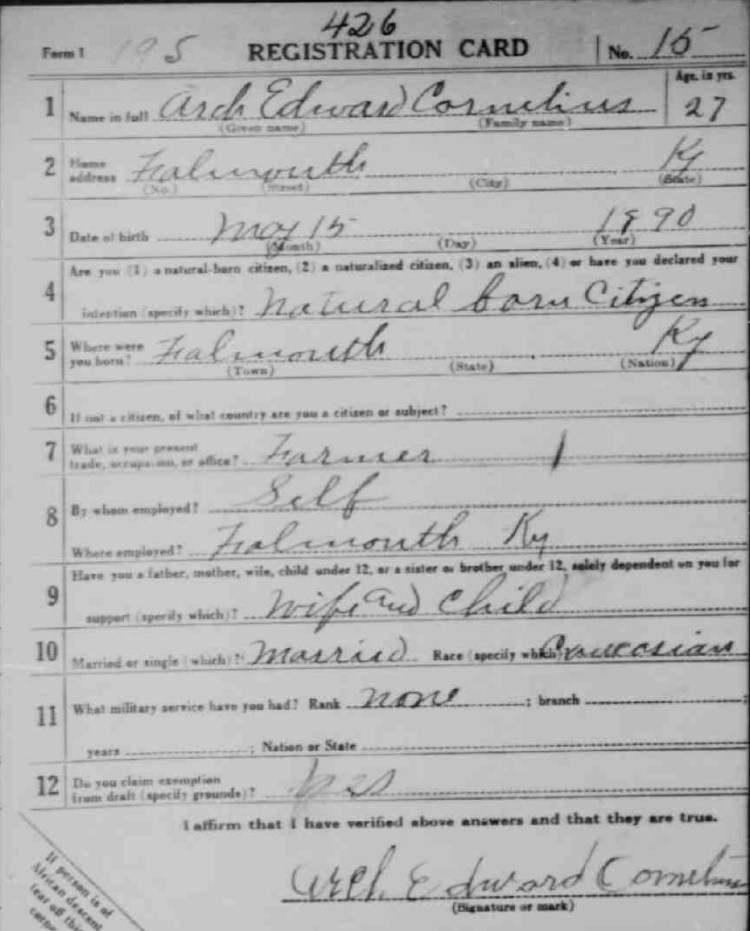 426
Form 1 195 REGISTRATION CARD No. 15
1 Name in full Arch Edward Cornelius Age, in yrs. 27
(Given name) (Family name)
2 Home address Falmouth Ky
(No.) (Street) (City) (State)
3 Date of birth May 15 1890
(Month) (Day) (Year)
Are you (1) a natural-born citizen, (2) a naturalized citizen, (3) an alien, (4) or have you declared your
4 intention (specify which)? Natural born Citizen
5 Where were you born? Falmouth Ky
(Town) (State) (Nation)
6 If not a citizen, of what country are you a citizen or subject?
7 What is your present trade, occupation, or office? Farmer
8 By whom employed? Self
Where employed? Falmouth Ky
Have you a father, mother, wife, child under 12, or a sister or brother under 12, solely dependent on you for
9 support (specify which)? Wife and Child
10 Married or single (which)? Married Race (specify which)? Caucasian
11 What military service have you had? Rank none ; branch ;
years ; Nation or State
12 Do you claim exemption from draft (specify grounds)? yes
I affirm that I have verified above answers and that they are true.
Arch Edward Cornelius
(Signature or mark)
If person is of
African descent
tear off this
corner